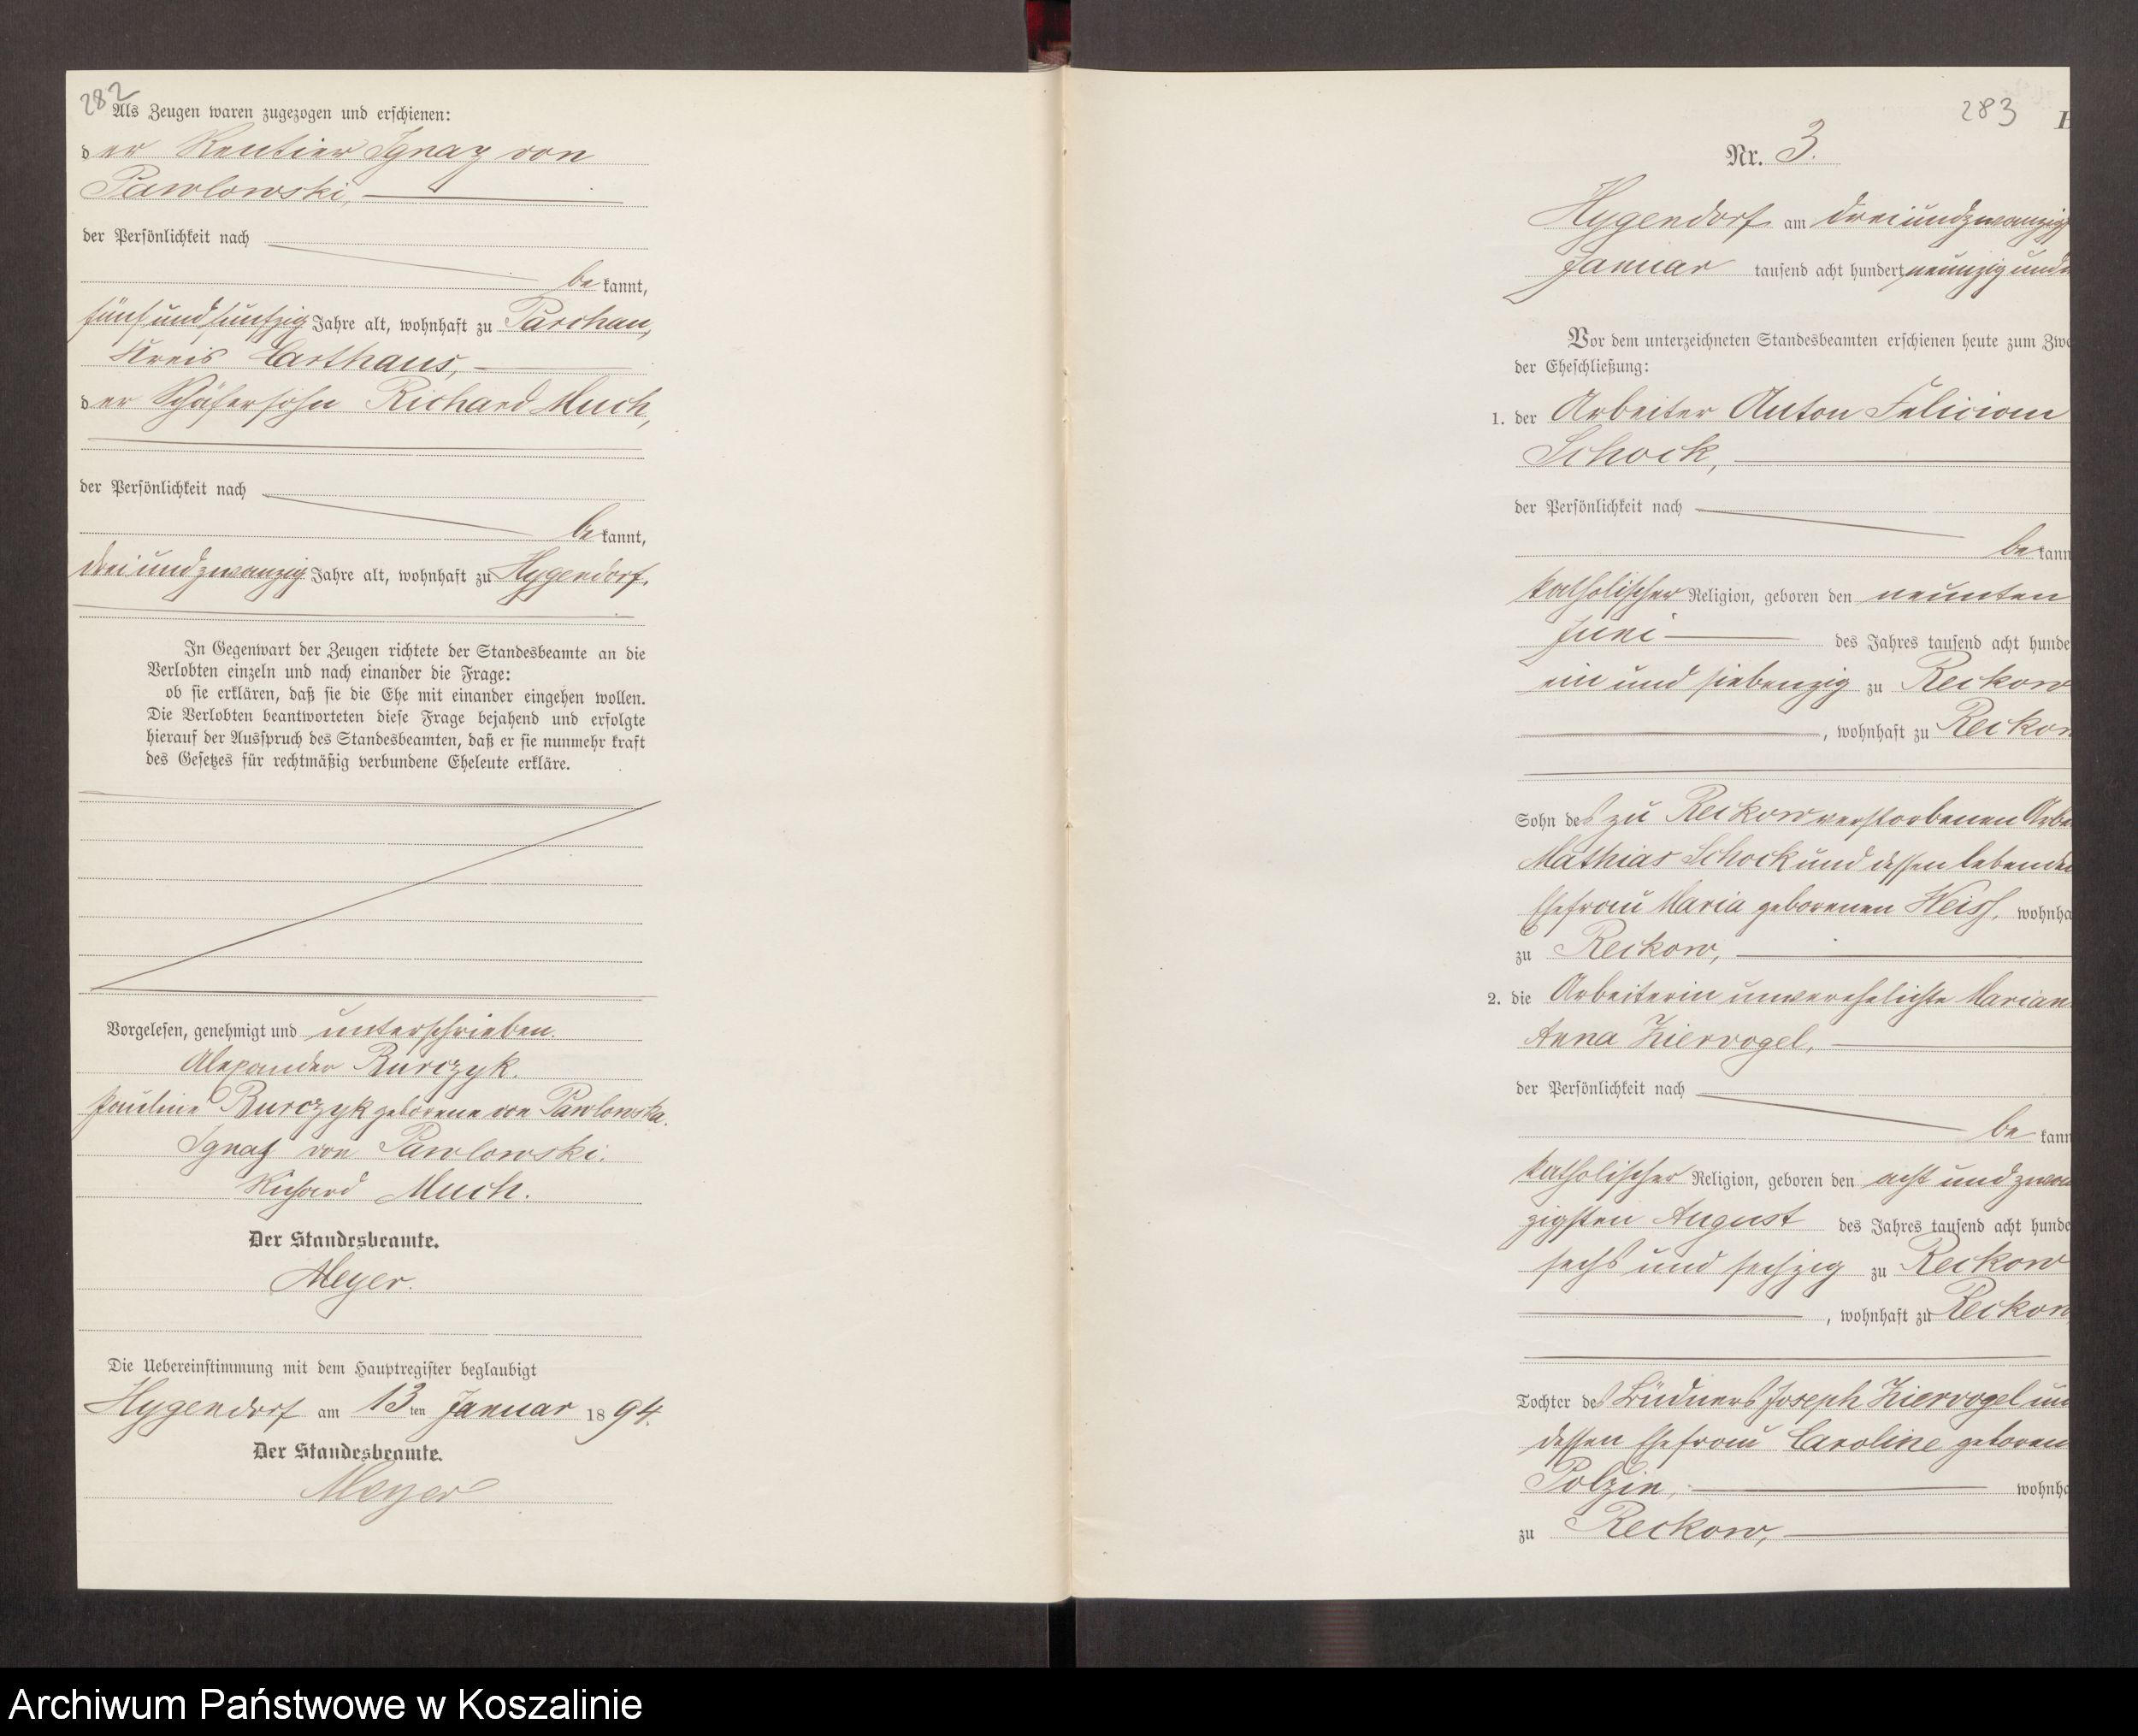 282
Als Zeugen waren zugezogen und erschienen:
der Rentier Ignaz von
Pawlowski,
der Persönlichkeit nach
be kannt,
fünf und fünfzig Jahre alt, wohnhaft zu Parchau,
Kreis Carthaus,
der Schäfersohn Richard Much,
der Persönlichkeit nach
be kannt,
dreiundzwanzig Jahre alt, wohnhaft zu Hygendorf.
In Gegenwart der Zeugen richtete der Standesbeamte an die
Verlobten einzeln und nach einander die Frage:
ob sie erklären, daß sie die Ehe mit einander eingehen wollen.
Die Verlobten beantworteten diese Frage bejahend und erfolgte
hierauf der Ausspruch des Standesbeamten, daß er sie nunmehr kraft
des Gesetzes für rechtmäßig verbundene Eheleute erkläre.
Vorgelesen, genehmigt und unterschrieben.
Alexander Burczyk.
Pauline Burczyk geborene von Pawlowska.
Ignaz von Pawlowski.
Richard Much.
Der Standesbeamte.
Meyer.
Die Uebereinstimmung mit dem Hauptregister beglaubigt
Hygendorf am 13ten Januar 1894.
Der Standesbeamte.
Meyer
283
Nr. 3.
Hygendorf am dreiundzwanzigs
Januar tausend acht hundert neunzig und
Vor dem unterzeichneten Standesbeamten erschienen heute zum Zwe
der Eheschließung:
1. der Arbeiter Anton Felician
Schock,
der Persönlichkeit nach
be kann
katholischer Religion, geboren den neunten
Juni des Jahres tausend acht hunde
ein und siebenzig zu Reckow
, wohnhaft zu Reckow
Sohn des zu Reckow verstorbenen Arbe
Mathias Schock und dessen lebenden
Ehefrau Maria geborenen Weiss, wohnha
zu Reckow,
2. die Arbeiterin unverehelichte Marian
Anna Ziervogel,
der Persönlichkeit nach
be kann
katholischer Religion, geboren den acht und zwan
zigsten August des Jahres tausend acht hunde
sechs und sechzig zu Reckow
, wohnhaft zu Reckow
Tochter des Büdners Joseph Ziervogel un
dessen Ehefrau Caroline geboren
Polzin, wohnha
zu Reckow,
Archiwum Państwowe w Koszalinie